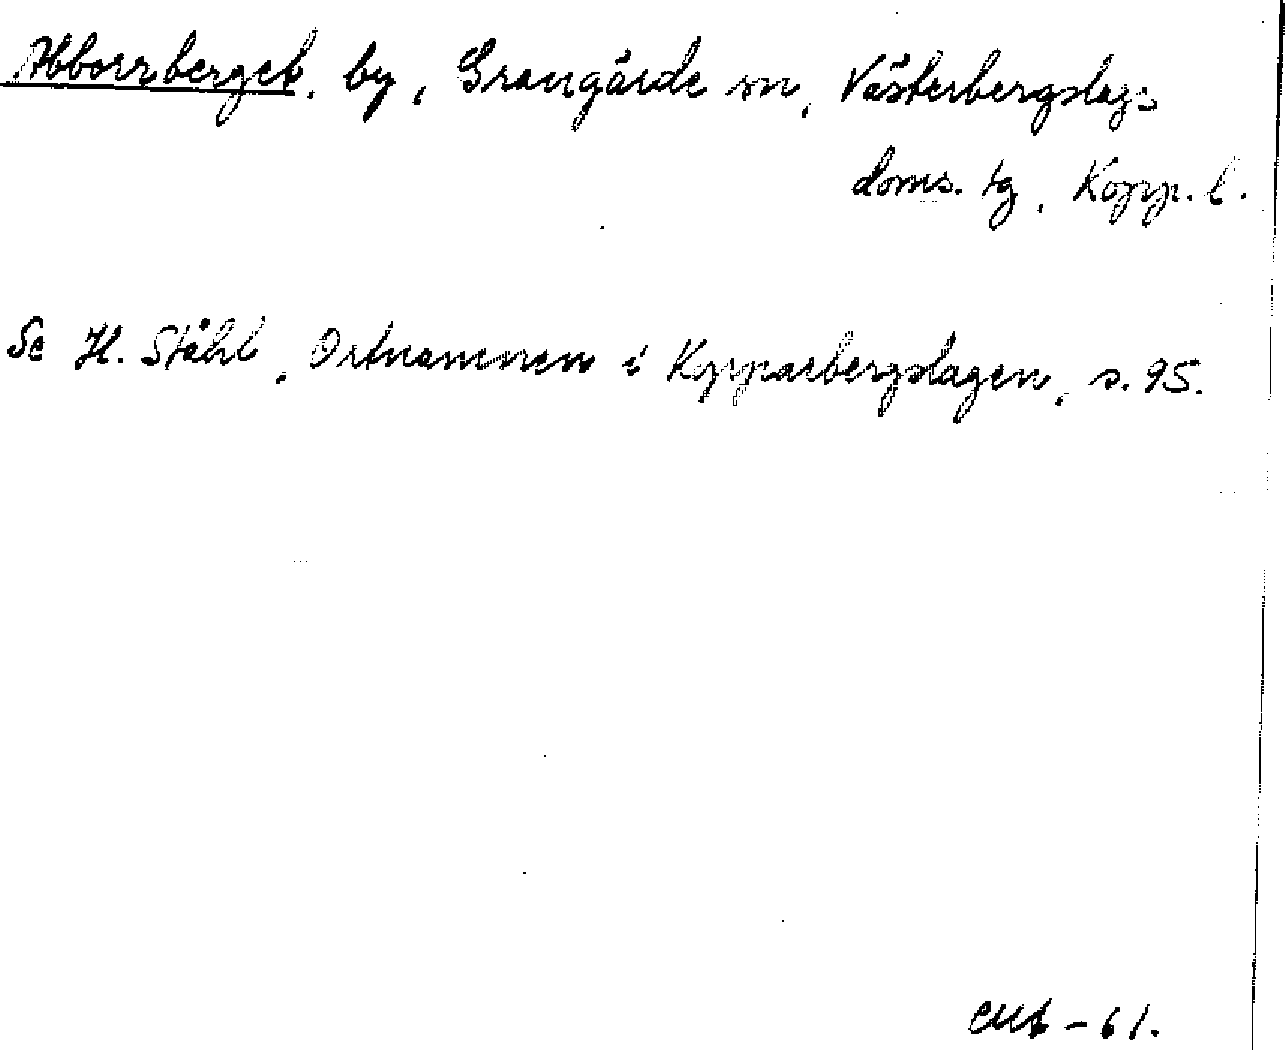 Abborrberget, by, Grangärde sn, Västerbergslags
doms. tg, Kopp. l.
Se H. Ståhl, Ortnamnen i Kopparbergslagen, s. 95.
-61.